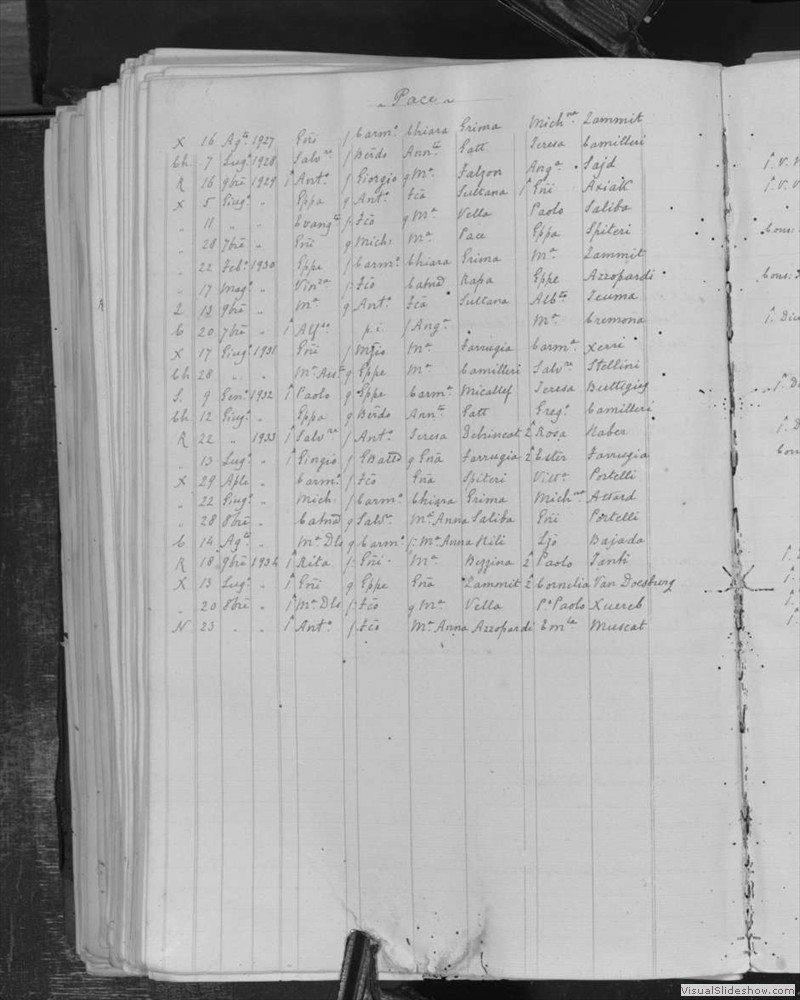 Pace
X 16 Agto 1927 Gni f Carmo Chiara Grima Michna Zammit
Ch 7 Lugo 1928 Salvre f Berdo Annta Gatt Teresa Camilleri
R 16 9bre 1929 1 Anto f Giorgio g Ma Falzon Anga Sajd
X 5 Giugo " Gppa g Anto Fca Sultana 1 Gni Axiak
" 11 " " Evangta f Fco g Ma Vella Paolo Saliba
" 28 7bre " Gni g Mich: Ma Pace Gppa Spiteri
" 22 Febo 1930 Gppe f Carmo Chiara Grima Ma Zammit
" 17 Mago " Vinza f Fco Catnd Rapa Gppe Azzopardi
Z 13 9bre " Ma g Anto Fca Sultana Albta Teuma
C 20 7bre " 1 Alfso p.i. f Anga Ma Cremona
X 17 Giugo 1931 Gni f Ma Farrugia Carma Xerri
Ch 28 " " Ma Asta g Gppe Ma Camilleri Salvre Stellini
S. 9 Geno 1932 1 Paolo g Gppe Carma Micallef Teresa Buttigieg
Ch 12 Giugo " Gppa g Berdo Annta Gatt Grego Camilleri
R 22 " 1933 1 Salvre f Anto Teresa Debrincat 2 Rosa Naber
" 13 Lugo " 1 Giorgio g GBatta g Gna Farrugia 2 Ester Farrugia
X 29 Aple " Carmo f Fco Gna Spiteri Vitta Portelli
" 22 Giugo " Mich: f Carmo Chiara Grima Michna Attard
" 28 8bre " Catnd g Salvre Ma Anna Saliba Gni Portelli
C 14 Agto " Ma Dls g Carmo f: Ma Anna Mili Bajada
R 18 9bre 1934 1 Rita f: Gni Ma Bezzina 2 Paolo Zanti
X 13 Lugo " 1 Gni g Gppe Gna Zammit 2 Cornelia Van Doesburg
" 20 8bre " 1 Ma Dls f: Fco g Ma Vella Po Paolo Xuereb
N 23 " " 1 Anto f: Fco Ma Anna Azzopardi Emla Muscat
VisualSlideshow.com